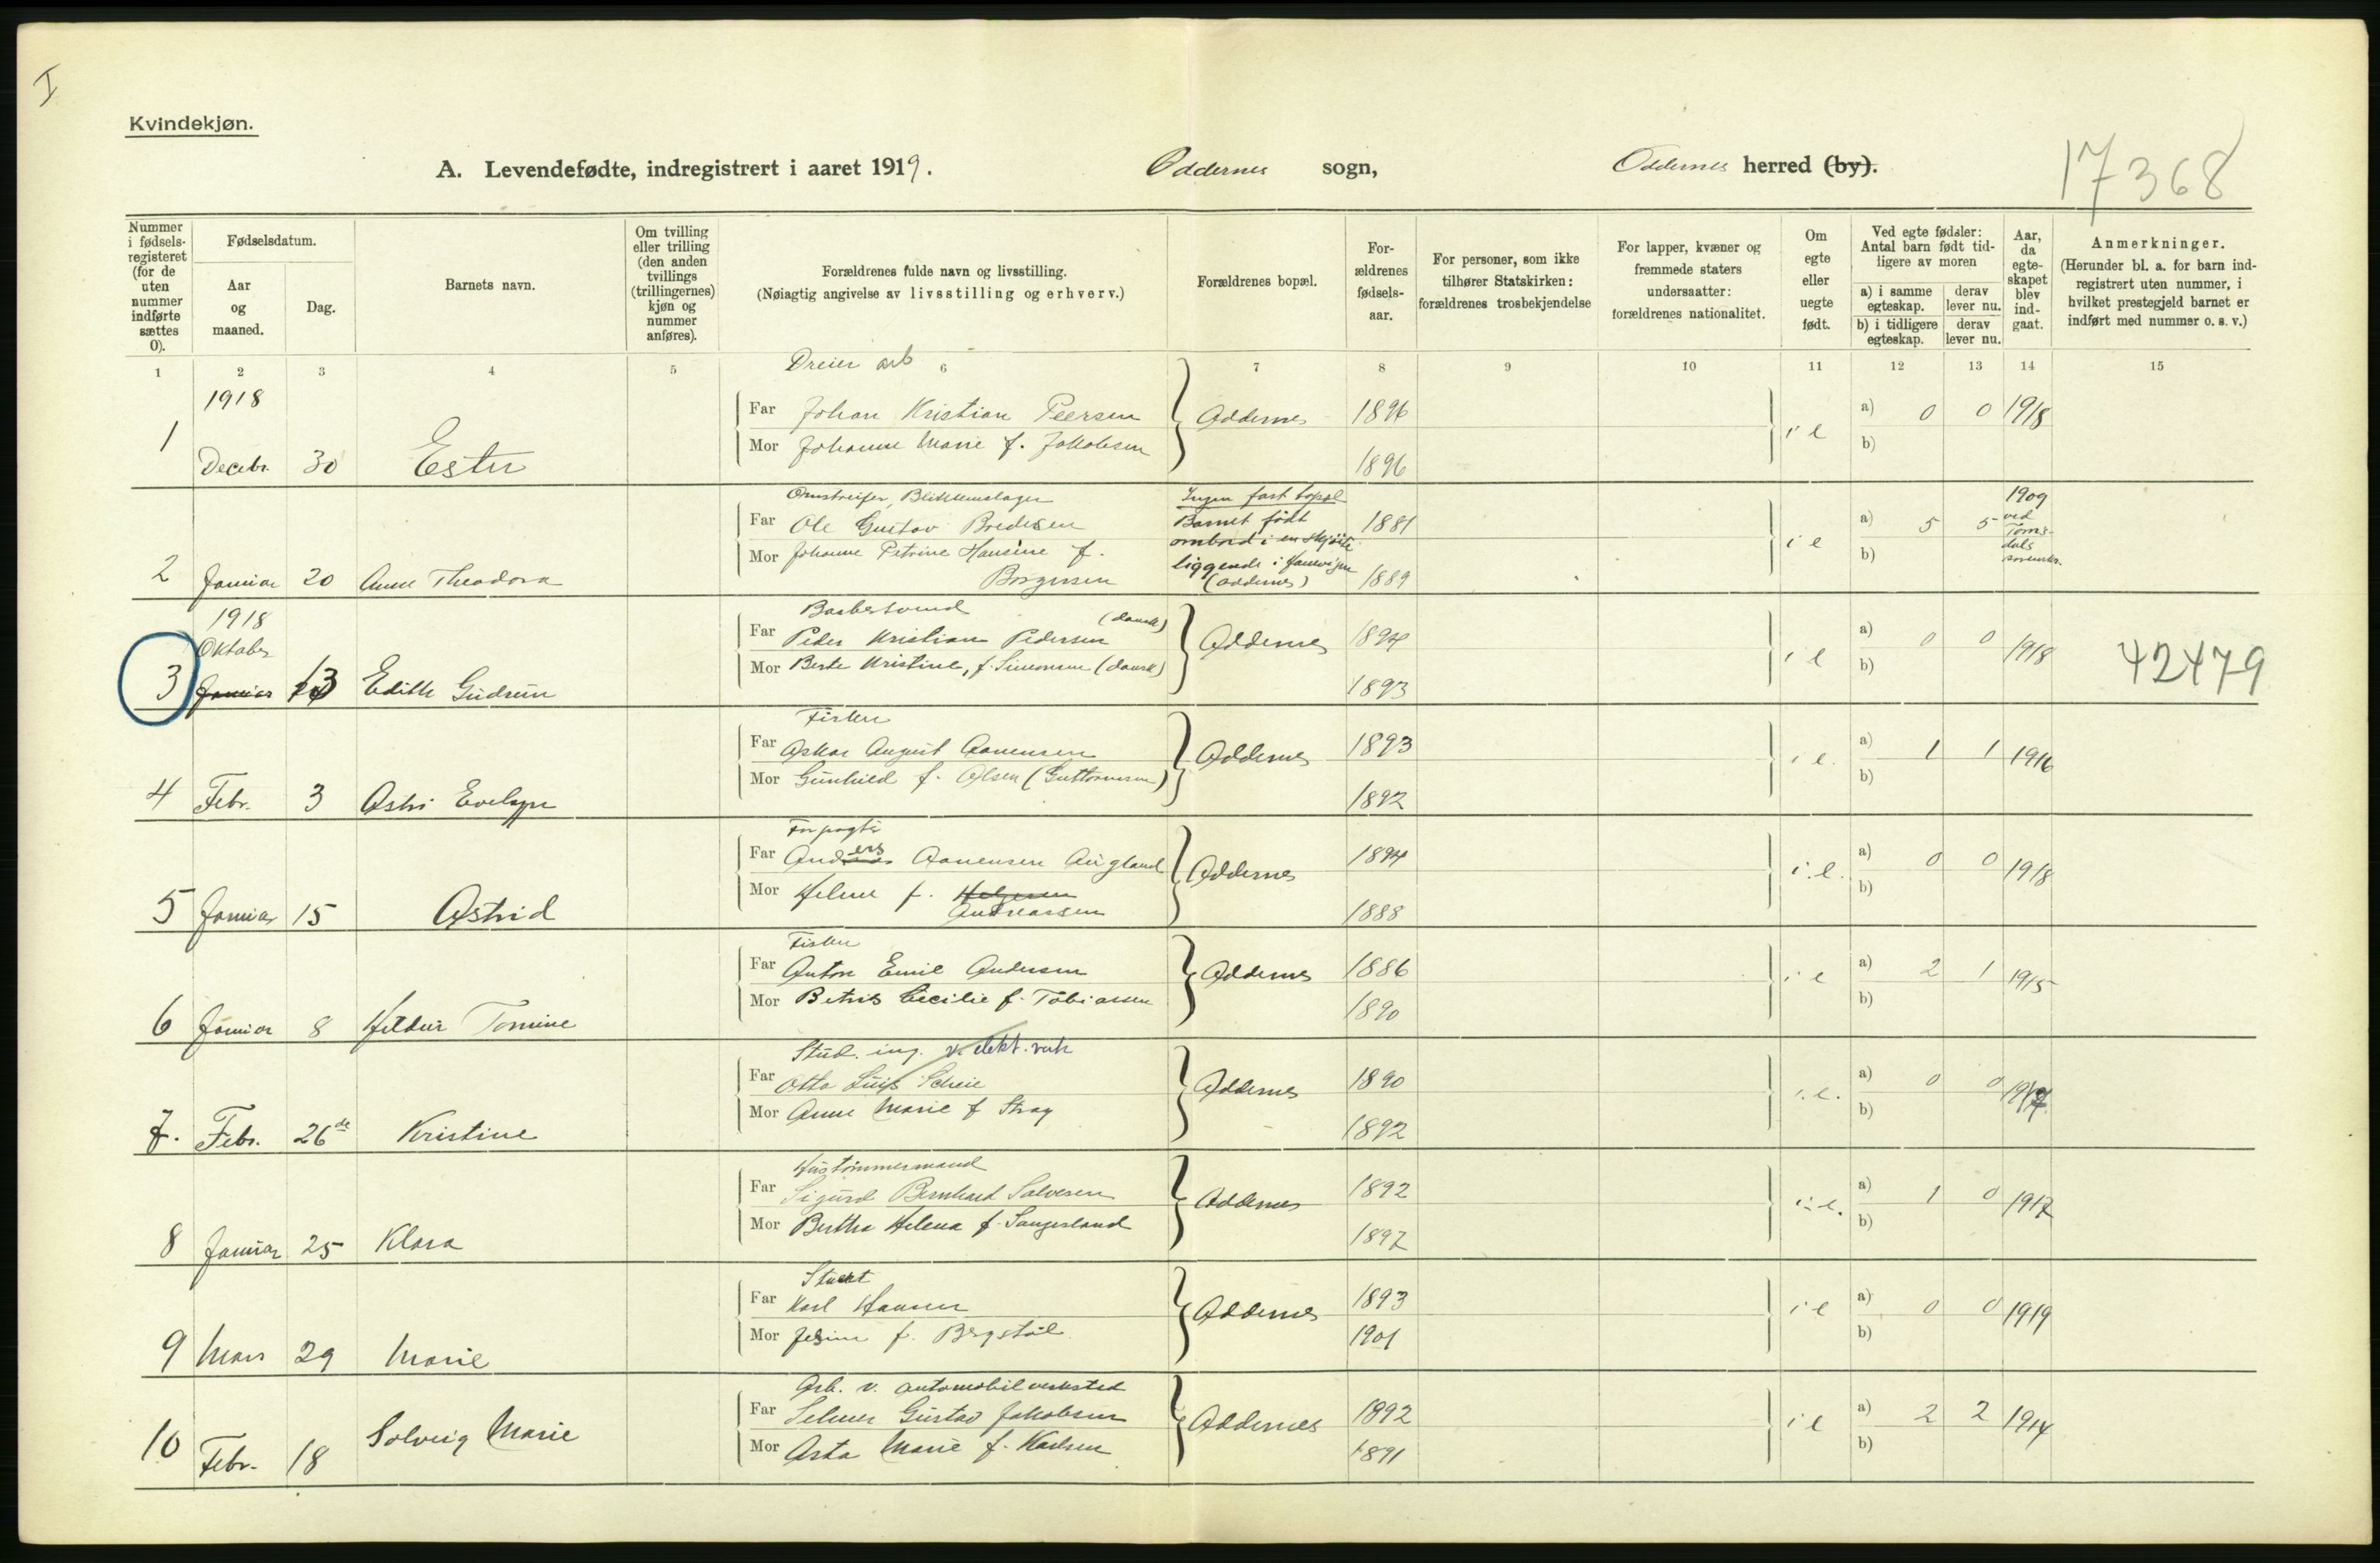 I
Kvindekjøn.
A. Levendefødte, indregistrert i aaret 1919. Oddernes sogn, Oddernes herred (by).
17368
Nummer i fødsels-registeret (for de uten nummer indførte sættes 0).
Fødselsdatum.
Aar og maaned.
Dag.
Barnets navn.
Om tvilling eller trilling (den anden tvillings (trillingernes) kjøn og nummer anføres).
Forældrenes fulde navn og livsstilling.
(Nøiagtig angivelse av livsstilling og erhverv.)
Forældrenes bopæl.
For-ældrenes fødsels-aar.
For personer, som ikke tilhører Statskirken: forældrenes trosbekjendelse
For lapper, kvæner og fremmede staters undersaatter: forældrenes nationalitet.
Om egte eller uegte født.
Ved egte fødsler: Antal barn født tid-ligere av moren
a) i samme egteskap. derav lever nu.
b) i tidligere egteskap. derav lever nu.
Aar, da egte-skapet blev ind-gaat.
Anmerkninger.
(Herunder bl. a. for barn ind-registrert uten nummer, i hvilket prestegjeld barnet er indført med nummer o. s. v.)
1 2 3 4 5 6 7 8 9 10 11 12 13 14 15
Dreier arb
1918
Far Johan Kristian Peersen Oddernes 1896 a) 0 0 1918
Mor Johanne Marie f. Jakobsen i e b)
1 Decbr. 30 Ester 1896
Omstreifer, Blikkenslager Ingen fast bopæl 1909
Far Ole Gustav Bredesen Barnet født 1881 a) 5 5 ved
ombord i en skjøite
Mor Johanne Petrine Hansine f. liggende i i e b)
2 Januar 20 Anne Theodora Borgersen (Oddernes) 1889
1918 (dansk)
Oktober Far Peder Kristian Pedersen Oddernes 1894 a) 0 0
Mor Berte Kristine, f. Simonsen (dansk) i e b) 1918 42479
3 Januar 13 Edith Gudrun 1893
Fisker
Far Oskar August Aanensen Oddernes 1893 a) 1 1 1916
Mor Gunhild f. Olsen (Guttormsen) i e. b)
4 Febr. 3 Astri Evelyn 1892
Forpagter
Far Anders Aanensen Augland Oddernes 1894 a) 0 0 1918
Mor Helene f. Helgesen i.e. b)
5 Januar 15 Astrid Andreassen 1888
Fisker
Far Anton Emil Andersen Oddernes 1886 a) 2 1 1915
Mor Betris Cecilie f. Tobiassen i e b)
6 Januar 8 Hildur Tomine 1890
Stud. ing. v. elekt. verk
Far Otto Luis Scheie Oddernes 1890 a) 0 0
Mor Anne Marie f Stray i.e. b)
7. Febr. 26de Kristine 1892
Hustømmermand
Far Sigurd Bernhard Salvesen Oddernes 1892 a) 1 0 1917
Mor Bertha Helena f. Sangesland i.e. b)
8 Januar 25 Klara 1897
Far Karl Hansen Oddernes 1893 a) 0 0 1919
Mor f. Bergstøl i e b)
9 Mars 29 Marie 1901
Arb. v. automobilverksted
Far Selmer Gustav Jakobsen Oddernes 1892 a) 2 2 1914
Mor Asta Marie f. Karlsen i e b)
10 Febr. 18 Solveig Marie 1891